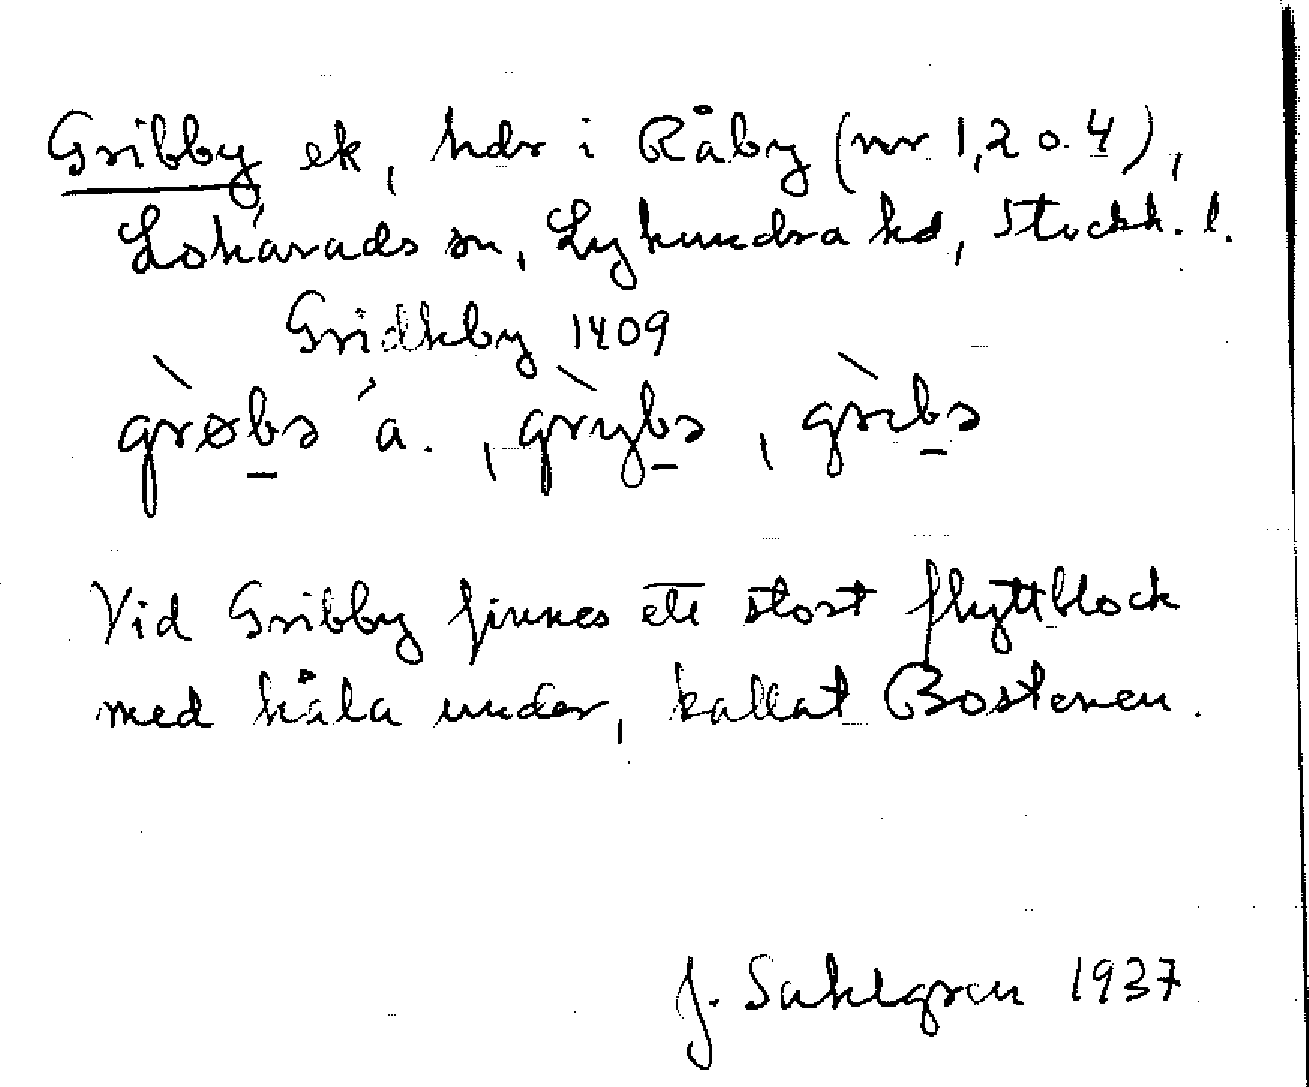 Gribby ek, hdr i Råby (nr 1,2 o. 4),
Lohärads sn, Lyhundra hd, Stockh. l.
Gridhby 1409
grøbə ä. , grybə , gribə
Vid Gribby finnes ett stort flyttblock
med håla under, kallat Bostenen.
J. Sahlgren 1937